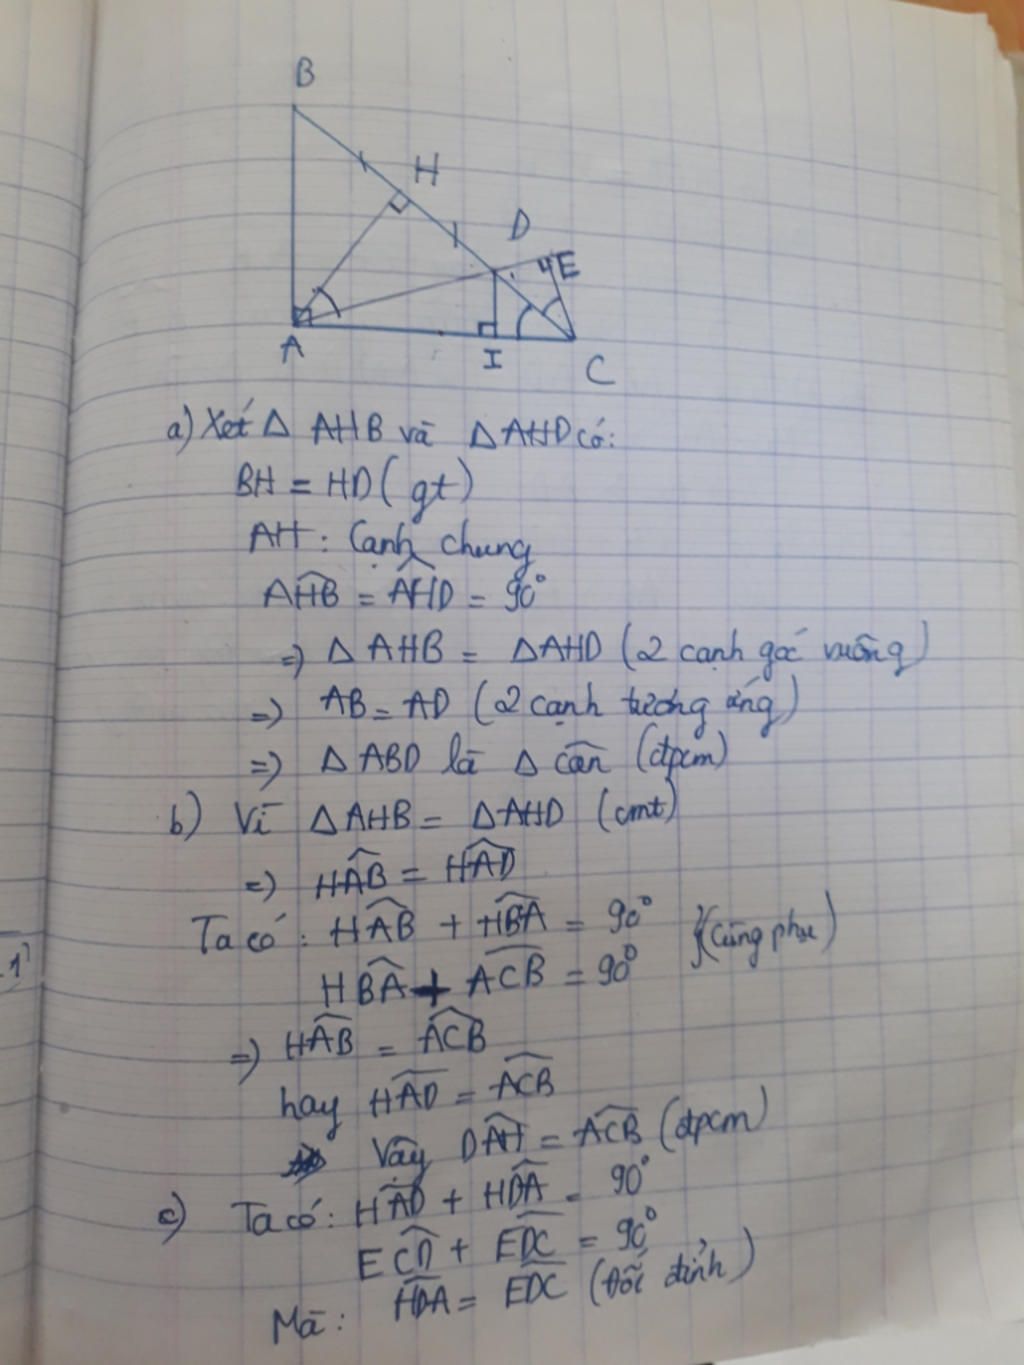 B
H
D
E
A
I
C
a) Xét Δ AHB và Δ AHD có:
BH = HD (gt)
AH : Cạnh chung
AĤB = AĤD = 90°
=) Δ AHB = Δ AHD (2 cạnh góc vuông)
=) AB = AD (2 cạnh tương ứng)
=) Δ ABD là Δ cân (đpcm)
b) Vì Δ AHB = Δ AHD (cmt)
=) HÂB = HÂD
Ta có : HÂB + HB̂A = 90° } (Cùng phụ)
HB̂A + AĈB = 90°
=) HÂB = AĈB
hay HÂD = AĈB
Vậy DÂH = AĈB (đpcm)
c) Ta có : HÂD + HD̂A = 90°
EĈD + ED̂C = 90°
Mà : HD̂A = ED̂C (Đối đỉnh)
1)